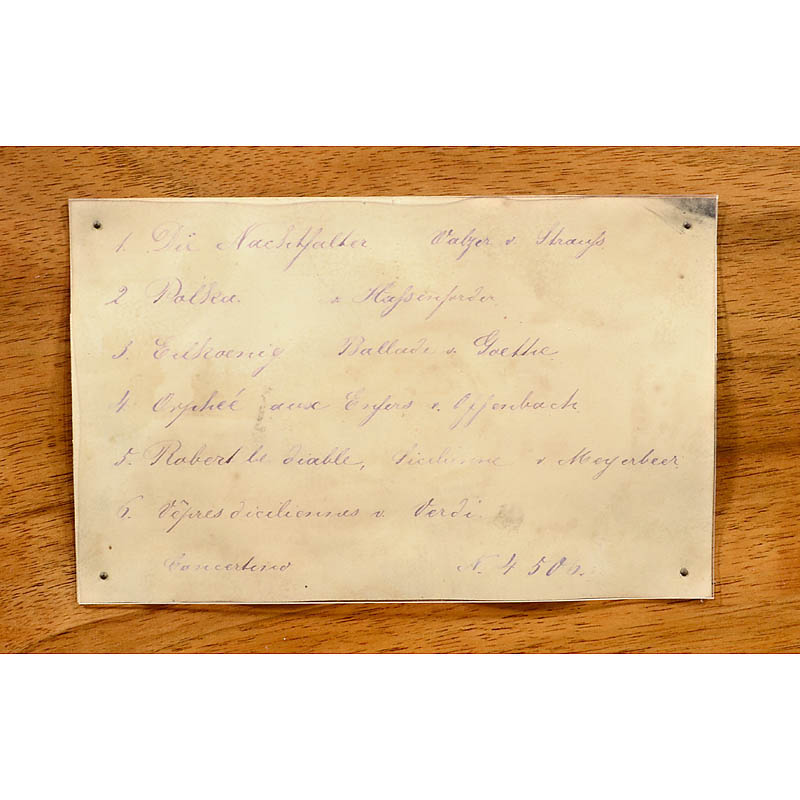 1. Die Nachtfalter Valzer v. Strauß
2 Polka. v Haßenforder
3. Erlkoenig Ballade v. Goethe.
4. Orpheé aux Enfers v. Offenbach
5. Robert le diable, Sicilienne v Meyerbeer
6. Vêpres siciliennes v. Verdi.
Concertino N. 4506.